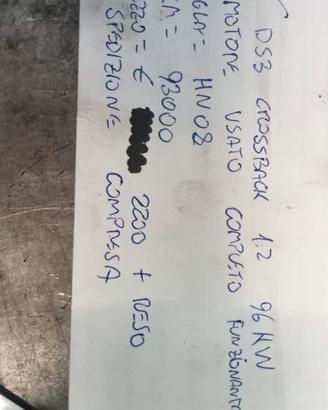 DS3 CROSSBACK 1.2 96 KW
MOTORE USATO COMPLETO FUNZIONANTE
HN08
93000
= € 2200 + RESO
SPEDIZIONE COMPRESA